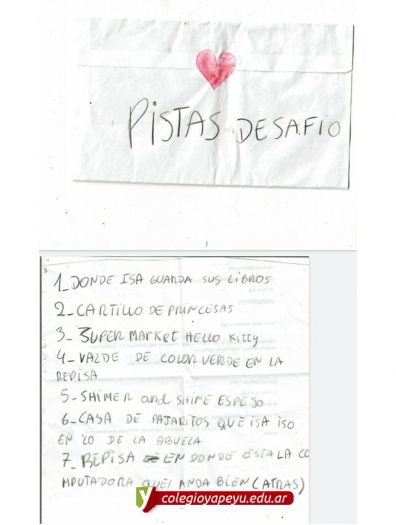 PISTAS DESAFIO
1_ DONDE ISA GUARDA SUS LIBROS
2_ CARTILLO DE PRINCESAS
3_ SUPER MARKET HELLO KITTY
4_ VALDE DE COLOR VERDE EN LA
REPISA
5_ SHIMER and SHINE ESPEJO
6_ CASA DE PAJARITOS QUE ISA ISO
EN LO DE LA ABUELA
7_ REPISA EN DONDE ESTA LA CO
MPUTADORA QUE ANDA BIEN (ATRAS)
colegioyapeyu.edu.ar